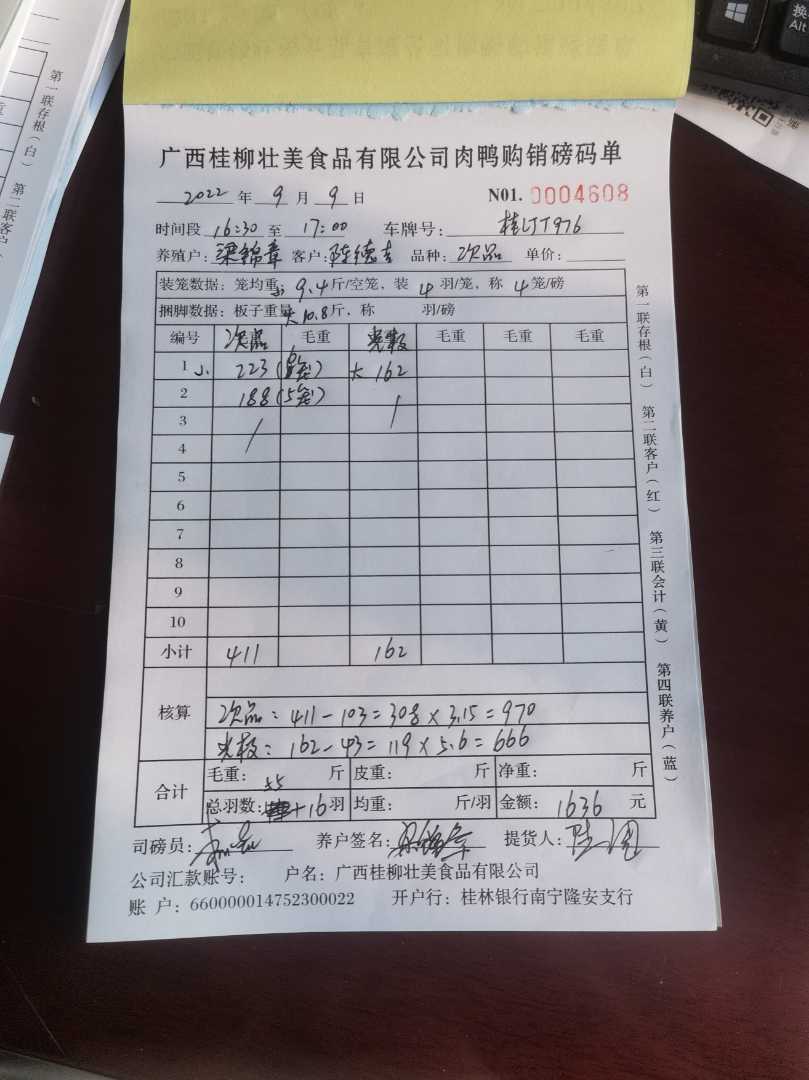 广西桂柳壮美食品有限公司肉鸭购销磅码单
2022 年 9 月 9 日 N01. 0004608
时间段 16:30 至 17:00 车牌号: 桂LJT976
养殖户: 梁锦章 客户: 陈德吉 品种: 次品 单价:
装笼数据: 笼均重: 小 9.4 斤/空笼, 装 4 羽/笼, 称 4 笼/磅
捆脚数据: 板子重量 大10.8 斤, 称 羽/磅
编号 次品 毛重 光极 毛重 毛重 毛重
1 小 223 (6笼) 大 162
2 188 (5笼)
3
4
5
6
7
8
9
10
小计 411 162
核算
次品: 411-103=308×3.15=970
光极: 162-43=119×5.6=666
合计
毛重: 斤 皮重: 斤 净重: 斤
总羽数: 55 +16 羽 均重: 斤/羽 金额: 1636 元
司磅员: 养户签名: 梁锦章 提货人:
公司汇款账号: 户名: 广西桂柳壮美食品有限公司
账 户: 660000014752300022 开户行: 桂林银行南宁隆安支行
第一联存根(白) 第二联客户(红) 第三联会计(黄) 第四联养户(蓝)
第一联存根(白) 第二联客户(
换
Alt